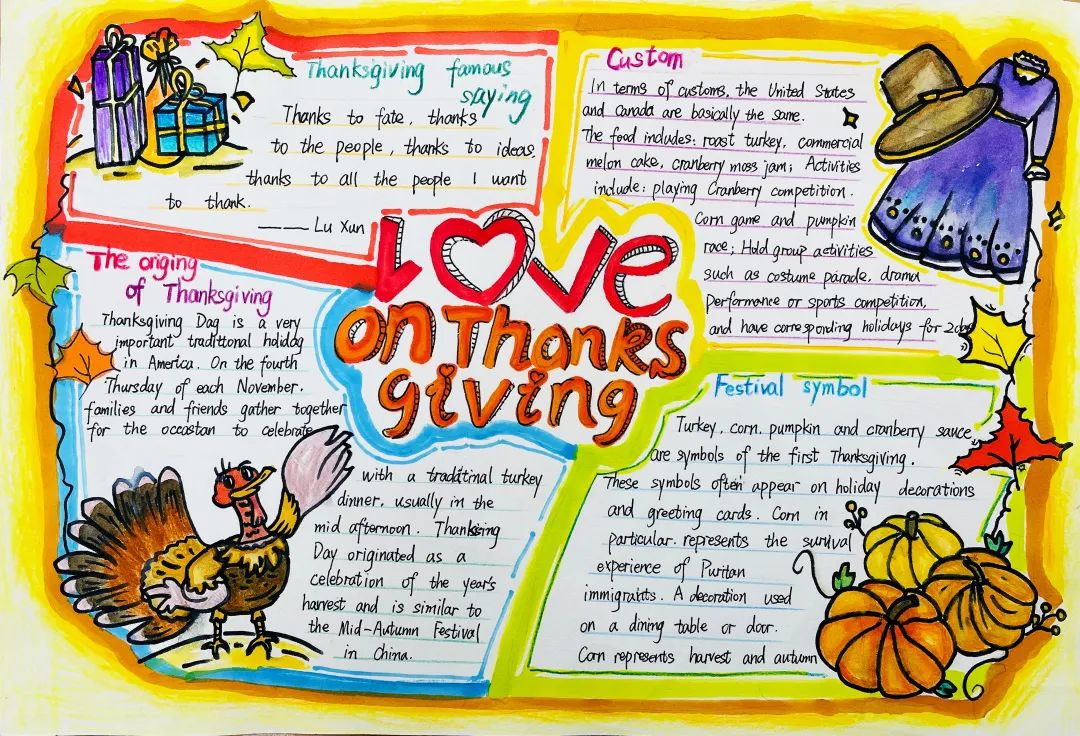 Thanksgiving famous
saying
Thanks to fate, thanks
to the people, thanks to ideas.
thanks to all the people I want
to thank.
—— Lu Xun
Custom
In terms of customs, the United States
and Canada are basically the same.
The food includes: roast turkey, commercial
melon cake, cranberry moss jam; Activities
include: playing Cranberry competition.
Corn game and pumpkin
race; Hold group activities
such as costume parade, drama
performance or sports competition,
and have corresponding holidays for 2
LOVE
on Thanks
giving
The origing
of Thanksgiving
Thanksgiving Dag is a very
important traditional holiday
in America. On the fourth
Thursday of each November.
families and friends gather together
for the occastan to celebrate
with a tradditinal turkey
dinner, usually in the
mid afternoon.
Day originated as a
celebration of the year's
harvest and is similar to
the Mid-Autumn Festival
in China.
Festival symbol
Turkey, corn, pumpkin and cranberry sauce
are symbols of the first Thanksgiving.
These symbols often appear on holiday decorations
and greeting cards. Corn in
particular. represents the survival
experience of Puritan
immigrants. A decoration used
on a dining table or door.
Corn represents harvest and autumn